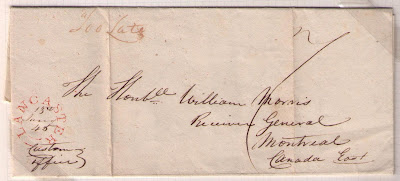 Too Late
The Honble William Morris
Receiver General
Montreal
Canada East
LANCASTER
13th
June
45
Customs
Office